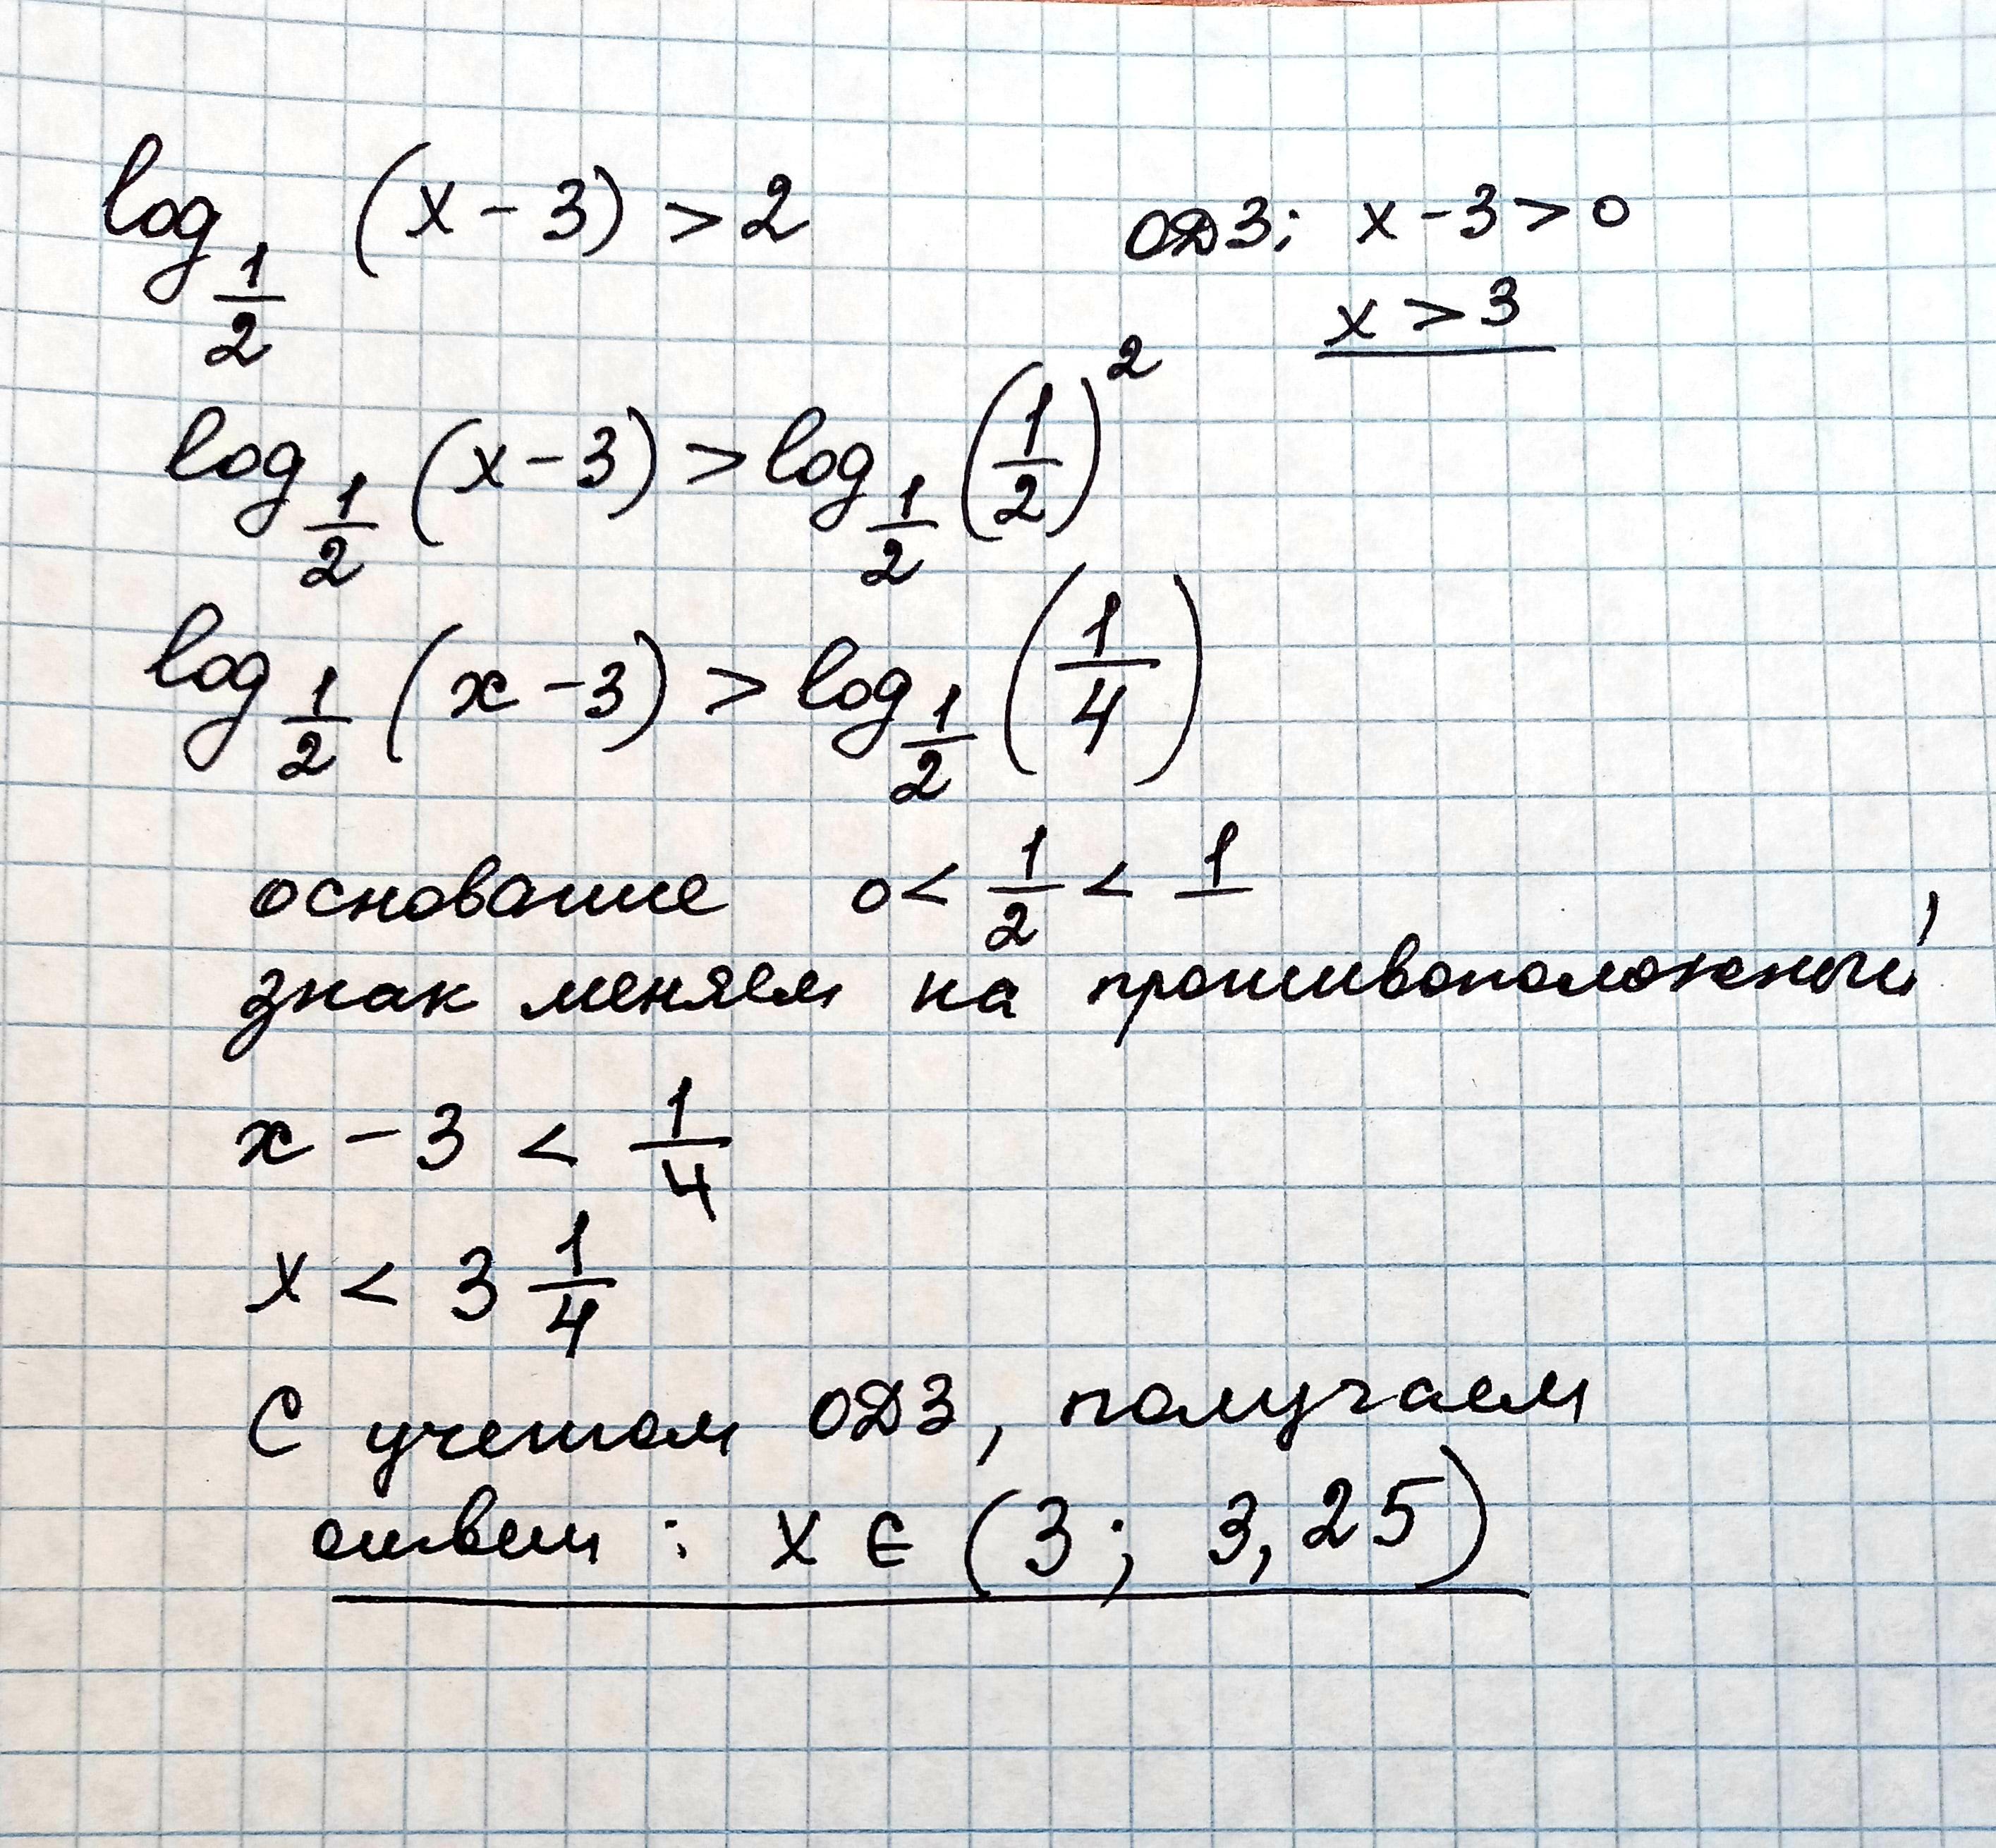 log 1/2 (x - 3) > 2
ОДЗ: x - 3 > 0
x > 3
log 1/2 (x - 3) > log 1/2 (1/2)²
log 1/2 (x - 3) > log 1/2 (1/4)
основание 0 < 1/2 < 1
знак меняем на противоположный
x - 3 < 1/4
x < 3 1/4
С учетом ОДЗ, получаем
ответ : x ∈ (3; 3,25)